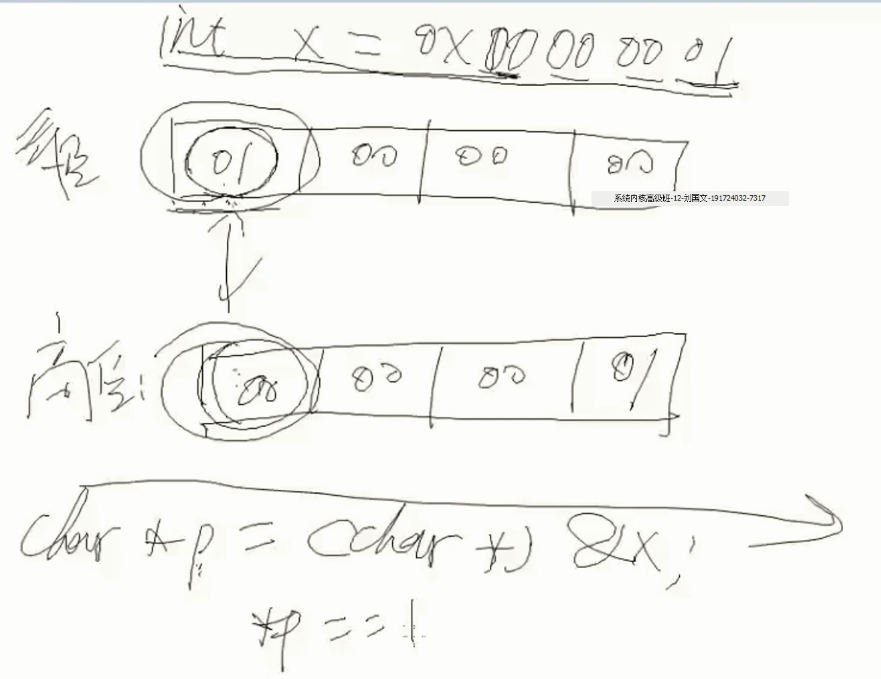 int x = 0x00 00 00 01
01 00 00 00
系统内核高级班-12-刘国文-191724032-7317
高位:
00 00 00 01
char *p = (char *) &x;
*p == 1